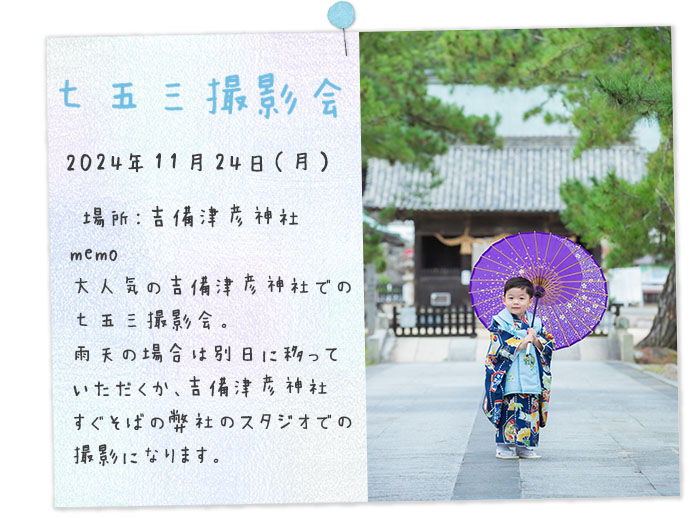 七五三撮影会
2024年11月24日(月)
場所:吉備津彦神社
memo
大人気の吉備津彦神社での
七五三撮影会。
雨天の場合は別日に移って
いただくか、吉備津彦神社
すぐそばの弊社のスタジオでの
撮影になります。